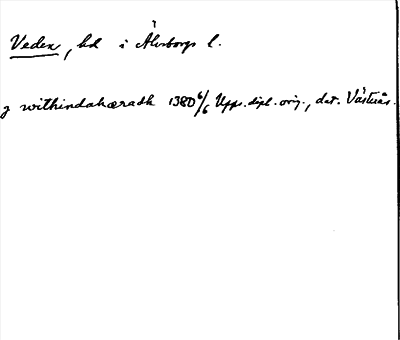 Veden, hd i Älvsborgs l.
j withindahæradh 1380 6/6 Upps. dipl. orig., dat. Västerås.